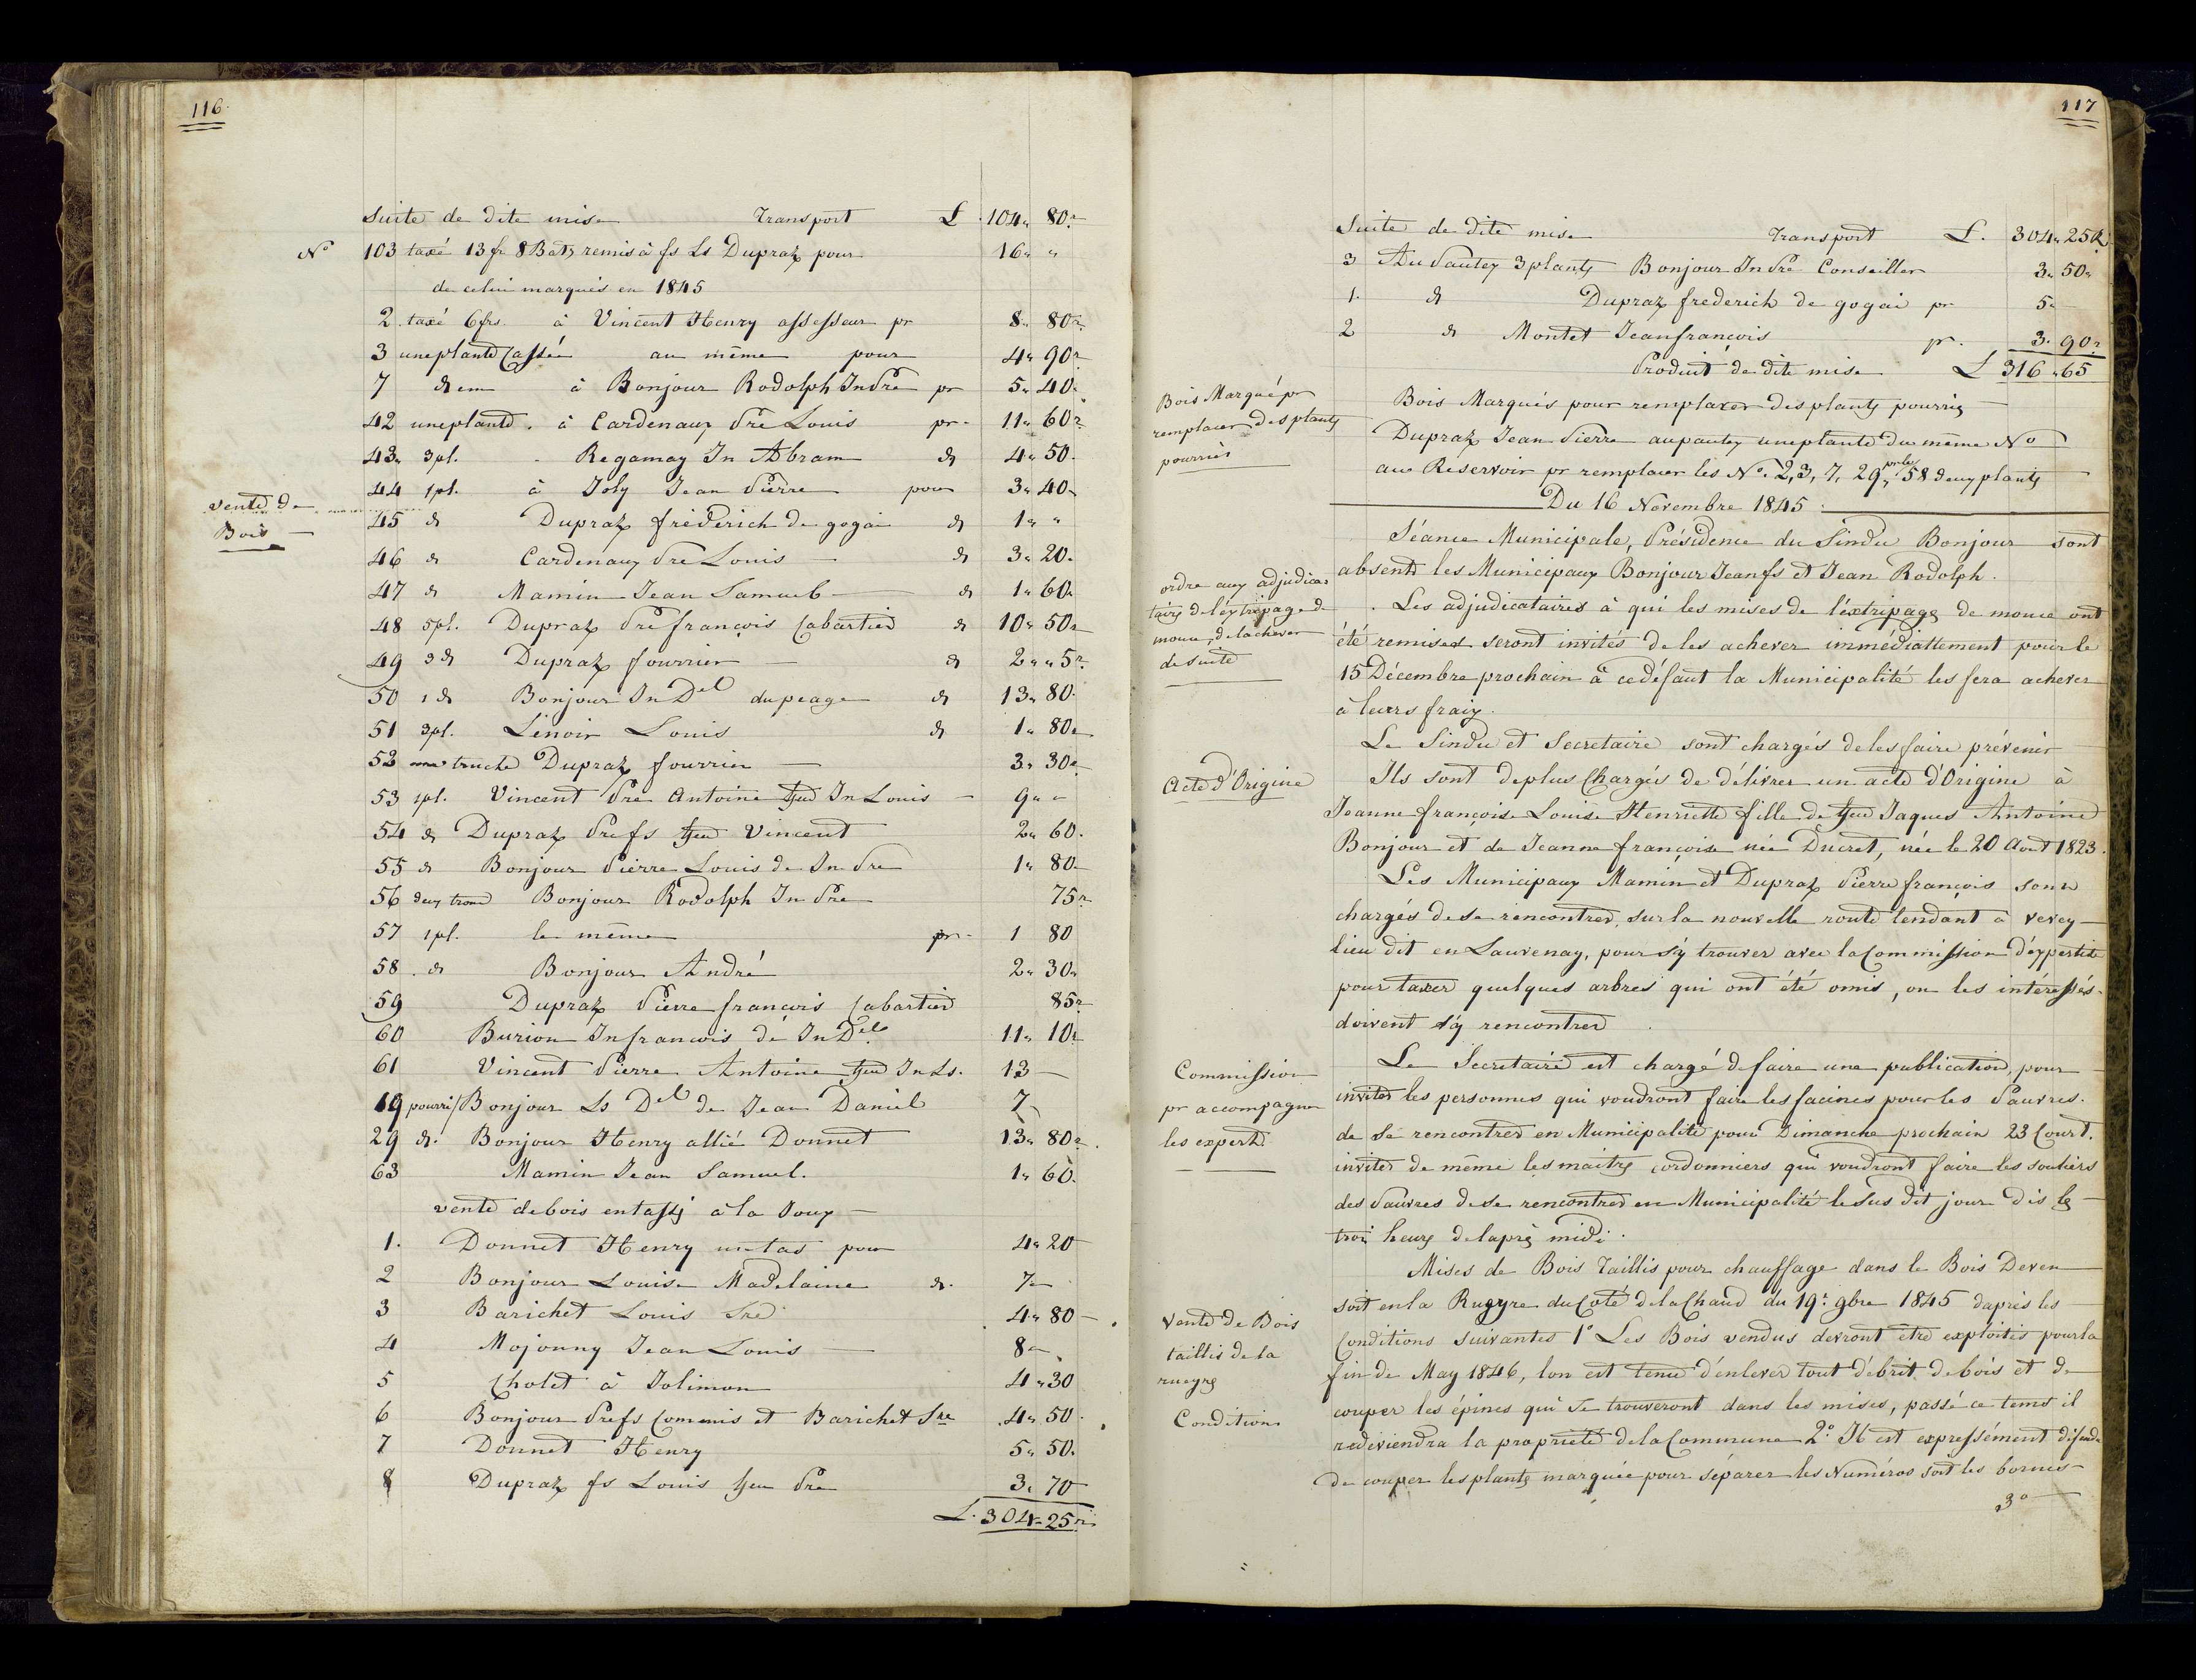 116
Suite de dite mise Transport L 104 80
N° 103 taxé 13 fr 8 Bat, remis à fs Ls Dupraz pour 16
de celui marqués en 1845
2 taxé 6 frs. à Vincent Henry assesseur pr 8 80
3 une plante Cassée au même pour 4 90
7 à Bonjour Rodolph Jn Pre pr 5 40
42 une plante à Cardenaux Pre Louis pr 11 60
43 3 pl. Regamay Jn Abram d° 4 50
44 1 pl. à Joly Jean Pierre pour 3 40
Vente de
Bois
45 d° Dupraz fréderich de gogai d° 1
46 d° Cardenaux Pre Louis d° 3 20
47 d° Mamin Jean Samuel d° 1 60
48 5 pl. Dupraz Pre françois Cabartier d° 10 50
49 3 d° Dupraz fourrier d° 2 5
50 1 d° Bonjour Jn Del du peage d° 13 80
51 3 pl. Lenoir Louis d° 1 80
52 truche Dupraz fourrier 3 30
53 1 pl. Vincent Pre Antoine feu Jn Louis 9
54 d° Dupraz Pre fs feu Vincent 2 60
55 d° Bonjour Pierre Louis de Jn Pre 1 80
56 deux tronc Bonjour Rodolph Jn Pre 75
57 1 pl. le même pr 1 80
58 d° Bonjour André 2 30
59 Dupraz Pierre françois Cabartier 85
60 Burion Jn françois de Jn Del 11 10
61 Vincent Pierre Antoine feu Jn Ls. 13
19 pourri / Bonjour Ls Del de Jean Daniel 7
29 d° Bonjour Henry allié Donnet 13 80
63 Mamin Jean Samuel. 1 60
vente de bois entassé à la Joux
1. Donnet Henry un tas pour 4 20
2 Bonjour Louise Madelaine d° 7
3 Barichet Louis Sre 4 80
4 Mojonny Jean Louis 8
5 Cholet à Jolimon 4 30
6 Bonjour Pre fs Commis et Barichet Sre 4 50
7 Donnet Henry 5 50
8 Dupraz fs Louis feu Pre 3 70
L. 304 25
117
Suite de dite mise Transport L. 304 25
3 Au Pautex 3 plants Bonjour Jn Pre Conseiller 3 50
1. d° Dupraz frederich de gogai pr 5
2 d° Montet Jean françois pr. 3 90
Produit de dite mise L 316 65
Bois Marqué pr
remplacer des plants
pourriés
Bois Marqués pour remplaxer des plants pourris
Dupraz Jean Pierre au pautex une plante du même N°
aux Reservoir pr remplacer les N°. 2, 3, 7, 29, pr les 58 deux plants
Du 16 Novembre 1845
Séance Municipale, Présidence du Sindic Bonjour sont
absents les Municipaux Bonjour Jean fs et Jean Rodolph.
ordre aux adjudica
taires de l'extripage de
mouce de l'achever
de suite
Les adjudicataires à qui les mises de l'éxtripage de mouce ont
été remises seront invités de les achever immédiattement pour le
15 Décembre prochain à ce défaut la Municipalité les fera achever
à leurs fraix.
Le Sindic et Secretaire sont chargés de les faire prévenir
Acte d'Origine
Ils sont de plus Chargés de délivrer un acte d'Origine à
Jeanne françoise Louise Henriette fille de feu Jaques Antoine
Bonjour et de Jeanne françoise née Ducret, née le 20 Aout 1823.
Les Municipaux Mamin et Dupraz Pierre françois sont
chargés de se rencontrer sur la nouvelle route tendant à Vevey
lieu dit en Lauvenay, pour s'y trouver avec la Commission d'expertise
pour taxer quelques arbres qui ont été omis, ou les intéressés
doivent s'y rencontrer
Commission
pr accompagner
les experts
Le Secretaire est chargé de faire une publication, pour
inviter les personnes qui voudront faire les facines pour les Pauvres.
de se rencontrer en Municipalité pour Dimanche prochain 23 Court.
inviter de même les maitres cordonniers qui voudront faire les souliers
des Pauvres de se rencontrer en Municipalité le sus dit jour dis les
trois heures de laprès midi.
Mises de Bois Taillis pour chauffage dans le Bois Deven
Vente de Bois
taillis de la
rueyre
Conditions
soit en la Rugyre du Coté de la Chaud du 19e 9bre 1845 daprès les
Conditions suivantes 1° Les Bois vendus devront être exploités pour la
fin de May 1846, lon est tenu d'enlever tout débrit de bois et de
couper les épines qui se trouveront dans les mises, passé ce tems il
redeviendra la propriété de la Commune 2° Il est expressément défendu
de couper les plants marquée pour séparer les Numéros soit les bornes
3°